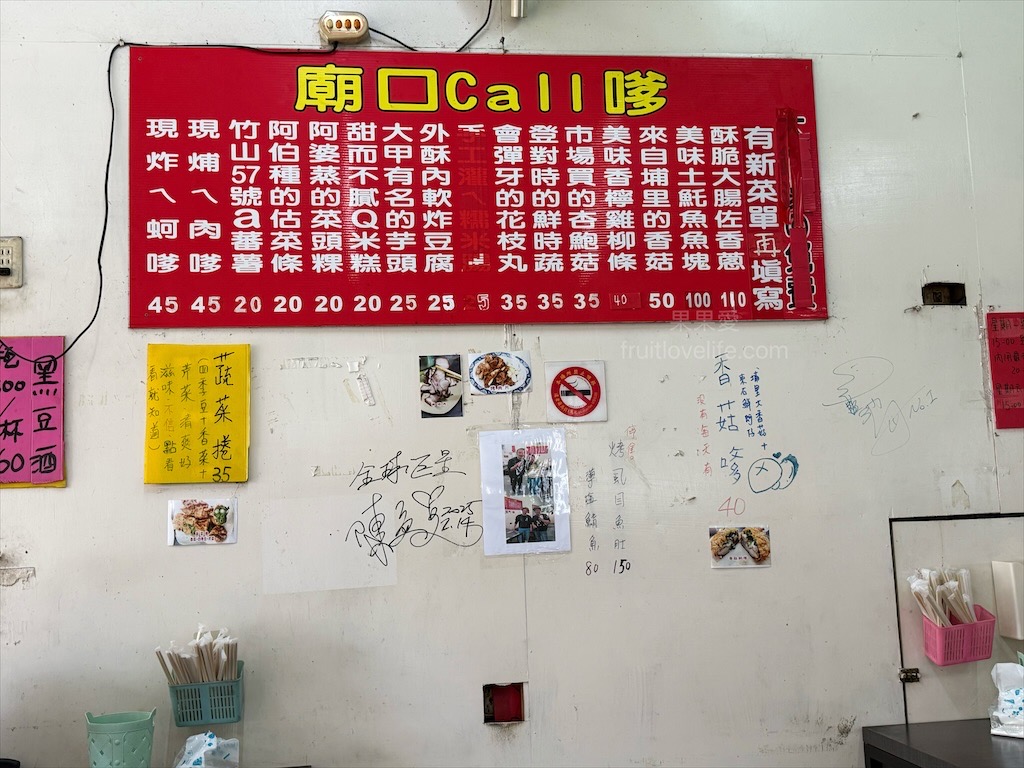 廟口Call嗲
現炸ㄟ蚵嗲 45
現焿ㄟ肉嗲 45
竹山57號a蕃薯 20
阿伯種的佔菜條 20
阿婆蒸的菜頭粿 20
甜而不膩Q米糕 20
大甲有名的芋頭 25
外酥內軟炸豆腐 25
會彈牙的花枝丸 35
登對時的鮮時蔬 35
市場買的杏鮑菇 35
美味香檸雞柳條 40
來自埔里的香菇 50
美味土魠魚魚塊 100
酥脆大腸佐香蔥 110
有新菜單再填寫
果果愛
fruitlovelife.com
黑豆酒
蔬菜捲 35
(四季豆+香菜+
芹菜 清爽好
滋味 不信點看
看就知道)
全球巨星
2025
2.14
烤虱目魚肚 150
鯖魚 80
香菇哆 40
埔里大香菇+
東石鮮蚵
No.1